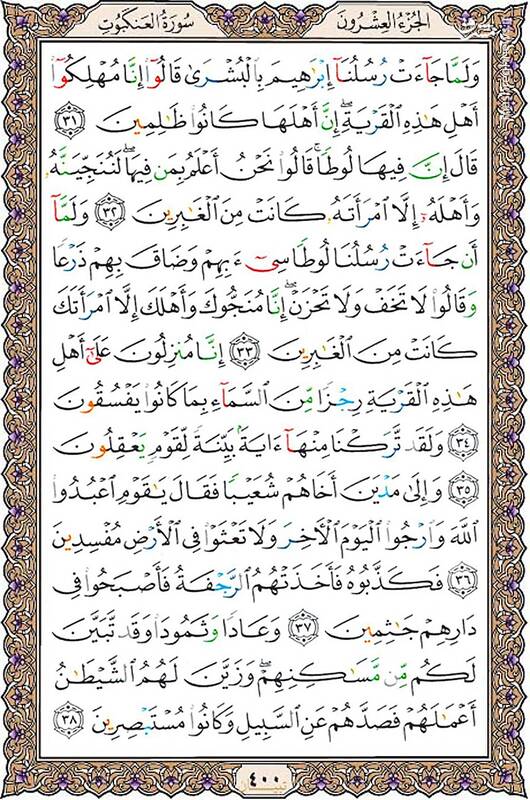 الجُزْءُ العِشْرُونَ سُورَةُ العَنكَبُوتِ
وَلَمَّا جَآءَتْ رُسُلُنَآ إِبْرَٰهِيمَ بِالْبُشْرَىٰ قَالُوٓا۟ إِنَّا مُهْلِكُوٓا۟
أَهْلِ هَٰذِهِ الْقَرْيَةِ ۖ إِنَّ أَهْلَهَا كَانُوا۟ ظَٰلِمِينَ ﴿٣١﴾
قَالَ إِنَّ فِيهَا لُوطًا ۚ قَالُوا۟ نَحْنُ أَعْلَمُ بِمَن فِيهَا ۖ لَنُنَجِّيَنَّهُۥ
وَأَهْلَهُۥٓ إِلَّا امْرَأَتَهُۥ كَانَتْ مِنَ الْغَٰبِرِينَ ﴿٣٢﴾ وَلَمَّآ
أَن جَآءَتْ رُسُلُنَا لُوطًا سِىٓءَ بِهِمْ وَضَاقَ بِهِمْ ذَرْعًا
وَقَالُوا۟ لَا تَخَفْ وَلَا تَحْزَنْ ۖ إِنَّا مُنَجُّوكَ وَأَهْلَكَ إِلَّا امْرَأَتَكَ
كَانَتْ مِنَ الْغَٰبِرِينَ ﴿٣٣﴾ إِنَّا مُنزِلُونَ عَلَىٰٓ أَهْلِ
هَٰذِهِ الْقَرْيَةِ رِجْزًا مِّنَ السَّمَآءِ بِمَا كَانُوا۟ يَفْسُقُونَ
﴿٣٤﴾ وَلَقَد تَّرَكْنَا مِنْهَآ ءَايَةًۢ بَيِّنَةً لِّقَوْمٍ يَعْقِلُونَ
﴿٣٥﴾ وَإِلَىٰ مَدْيَنَ أَخَاهُمْ شُعَيْبًا فَقَالَ يَٰقَوْمِ اعْبُدُوا۟
اللَّهَ وَارْجُوا۟ الْيَوْمَ الْأَخِرَ وَلَا تَعْثَوْا۟ فِى الْأَرْضِ مُفْسِدِينَ
﴿٣٦﴾ فَكَذَّبُوهُ فَأَخَذَتْهُمُ الرَّجْفَةُ فَأَصْبَحُوا۟ فِى
دَارِهِمْ جَٰثِمِينَ ﴿٣٧﴾ وَعَادًا وَثَمُودَا۟ وَقَد تَّبَيَّنَ
لَكُم مِّن مَّسَٰكِنِهِمْ ۖ وَزَيَّنَ لَهُمُ الشَّيْطَٰنُ
أَعْمَٰلَهُمْ فَصَدَّهُمْ عَنِ السَّبِيلِ وَكَانُوا۟ مُسْتَبْصِرِينَ ﴿٣٨﴾
٤٠٠